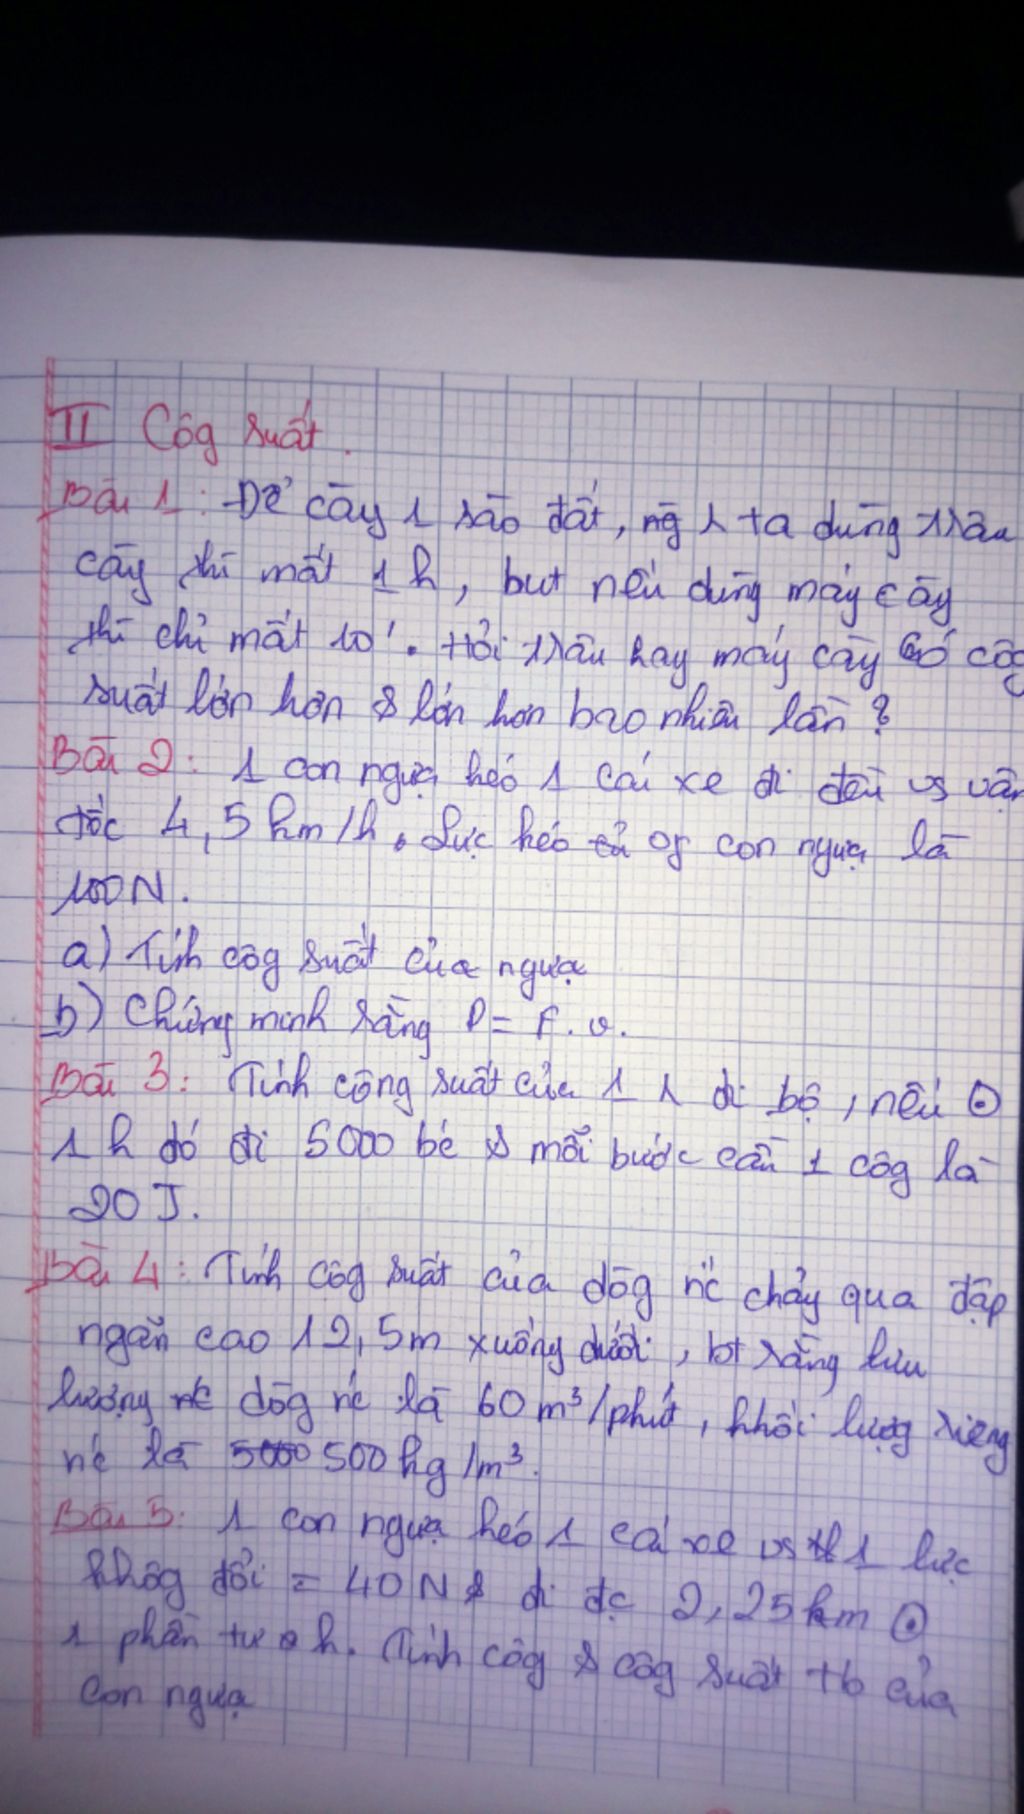 II Côg suất.
Bài 1: Để cày 1 sào đất, ng λ ta dùng trâu
cày thì mất 1h, but nếu dùng máy cày
thì chỉ mất 10'. Hỏi trâu hay máy cày có côg
suất lớn hơn & lớn hơn bao nhiêu lần?
Bài 2: 1 con ngựa kéo 1 cái xe đi đều vs vận
tốc 4,5 km/h. Lực kéo of con ngựa là
100N.
a) Tính côg suất của ngựa
b) Chứng minh rằng P = F.v.
Bài 3: Tính công suất của 1 λ đi bộ, nếu ⊙
1h đó đi 5000 bc & mỗi bước cần 1 côg là
20 J.
Bài 4: Tính côg suất của dòg nc chảy qua đập
ngăn cao 12,5m xuống dưới, bt rằng lưu
lượng dòg nc là 60 m³/phút, khối lượng riêng
nc là 500 kg/m³.
Bài 5: 1 con ngựa kéo 1 cái xe vs 1 lực
khôg đổi = 40N & đi đc 2,25km ⊙
1 phần tư h. Tính côg & côg suất tb của
con ngựa